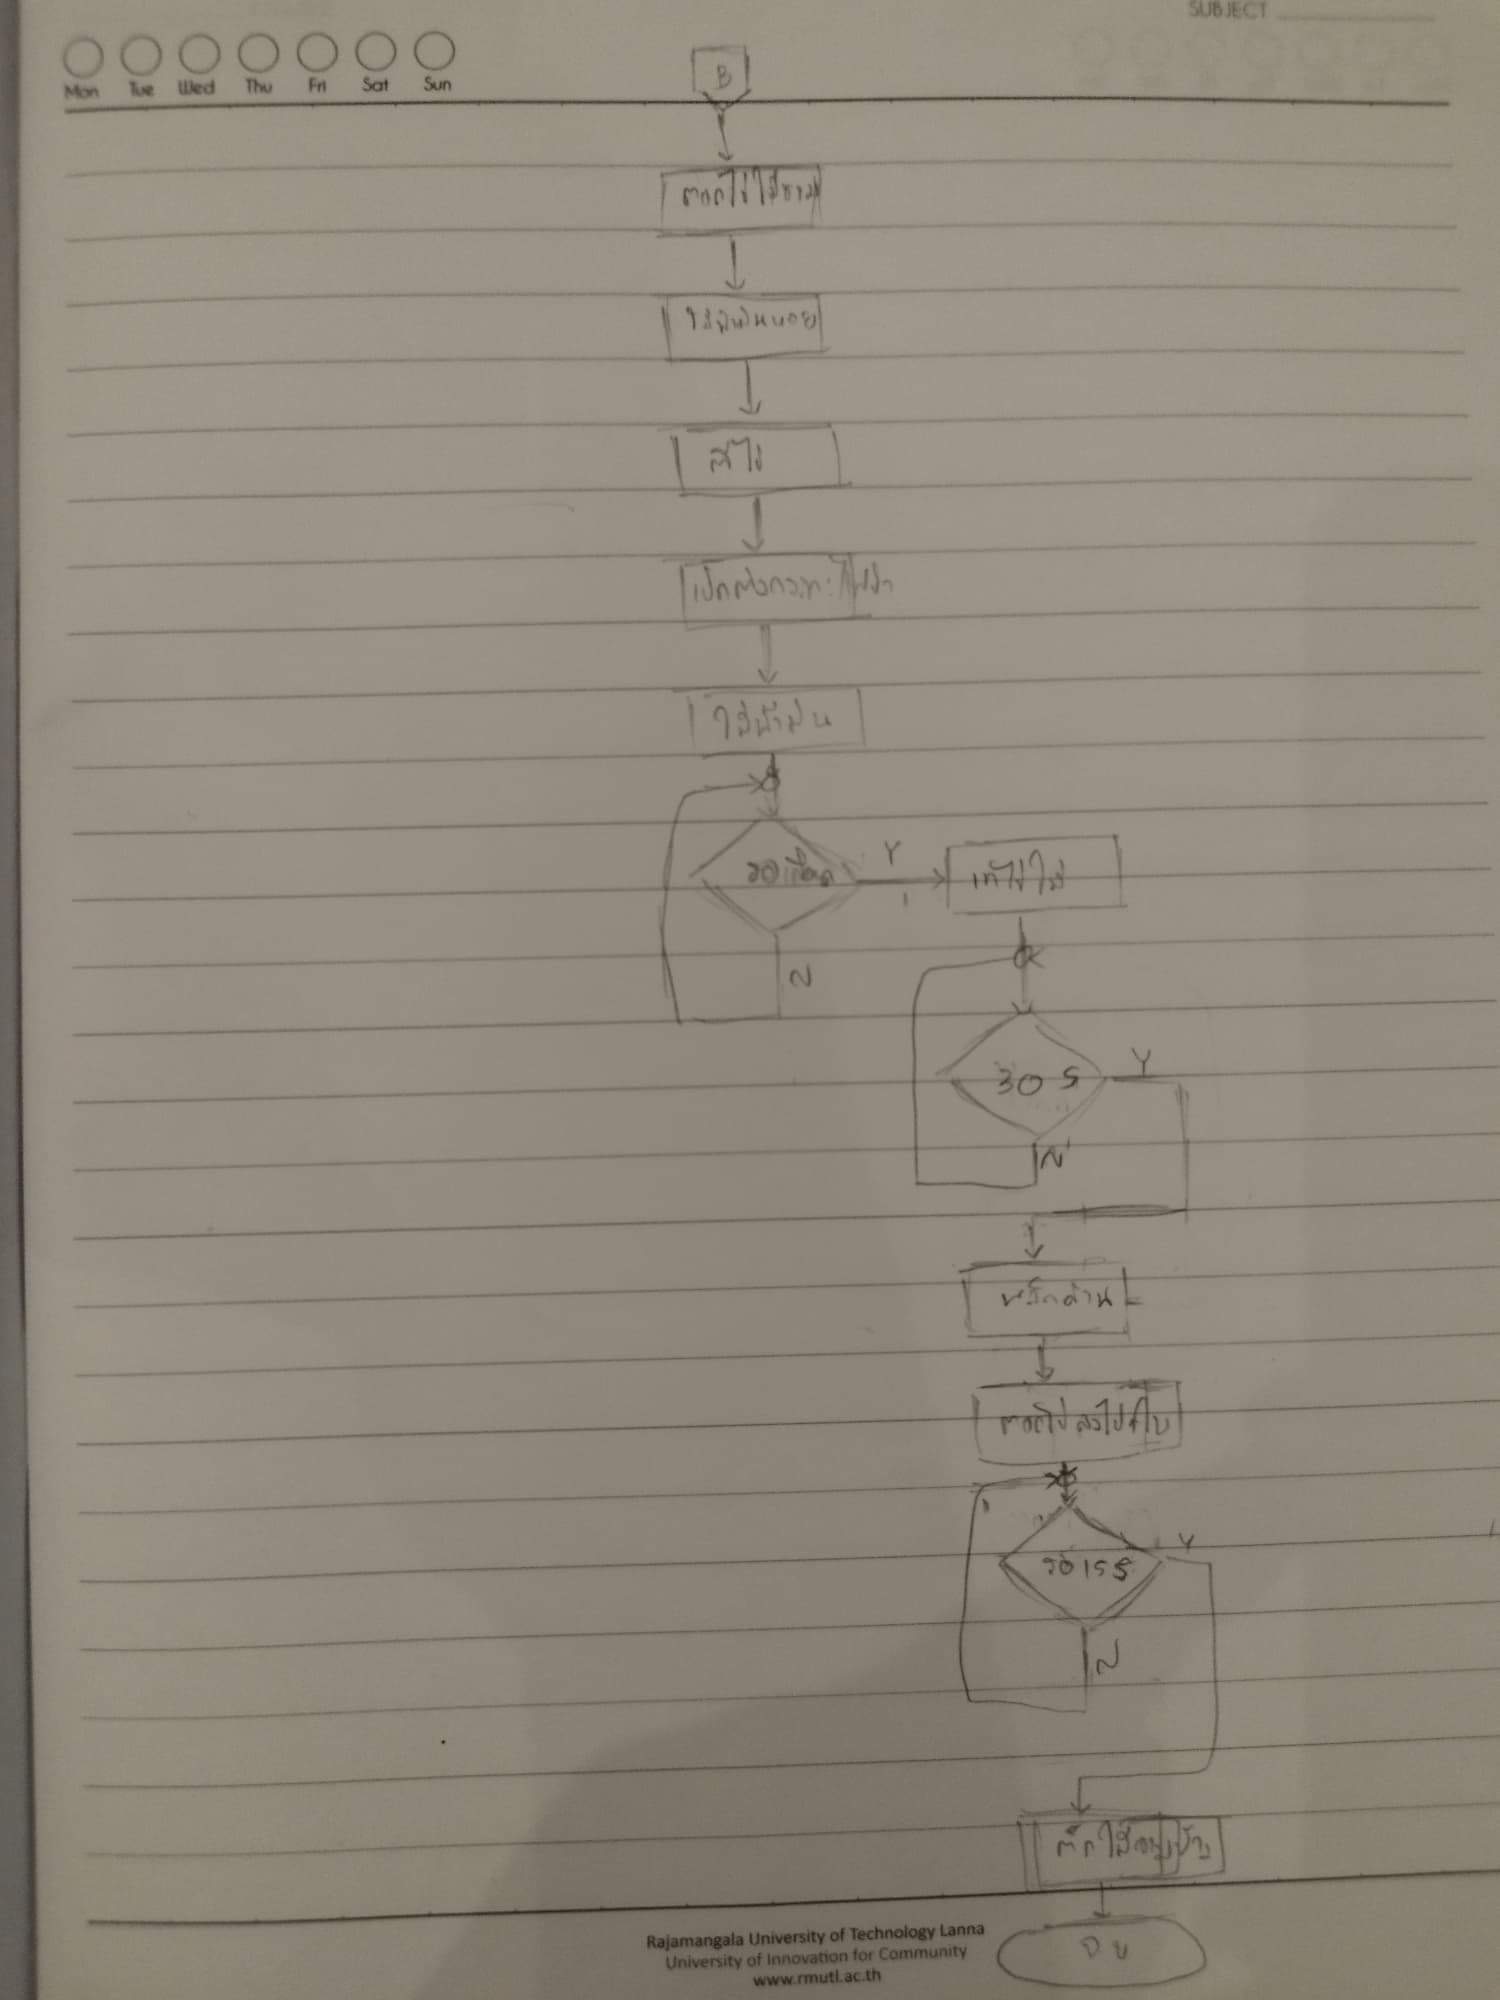 SUBJECT
Mon Tue Wed Thu Fri Sat Sun
B
ตอกไข่ใส่ชาม
ตีไข่
เปิดเตากระทะไฟฟ้า
ใส่น้ำมัน
รอเดือด
Y
เทไข่ใส่
N
30 S
Y
N
พลิกด้าน
รอ 15 S
Y
N
จบ
Rajamangala University of Technology Lanna
University of Innovation for Community
www.rmutl.ac.th